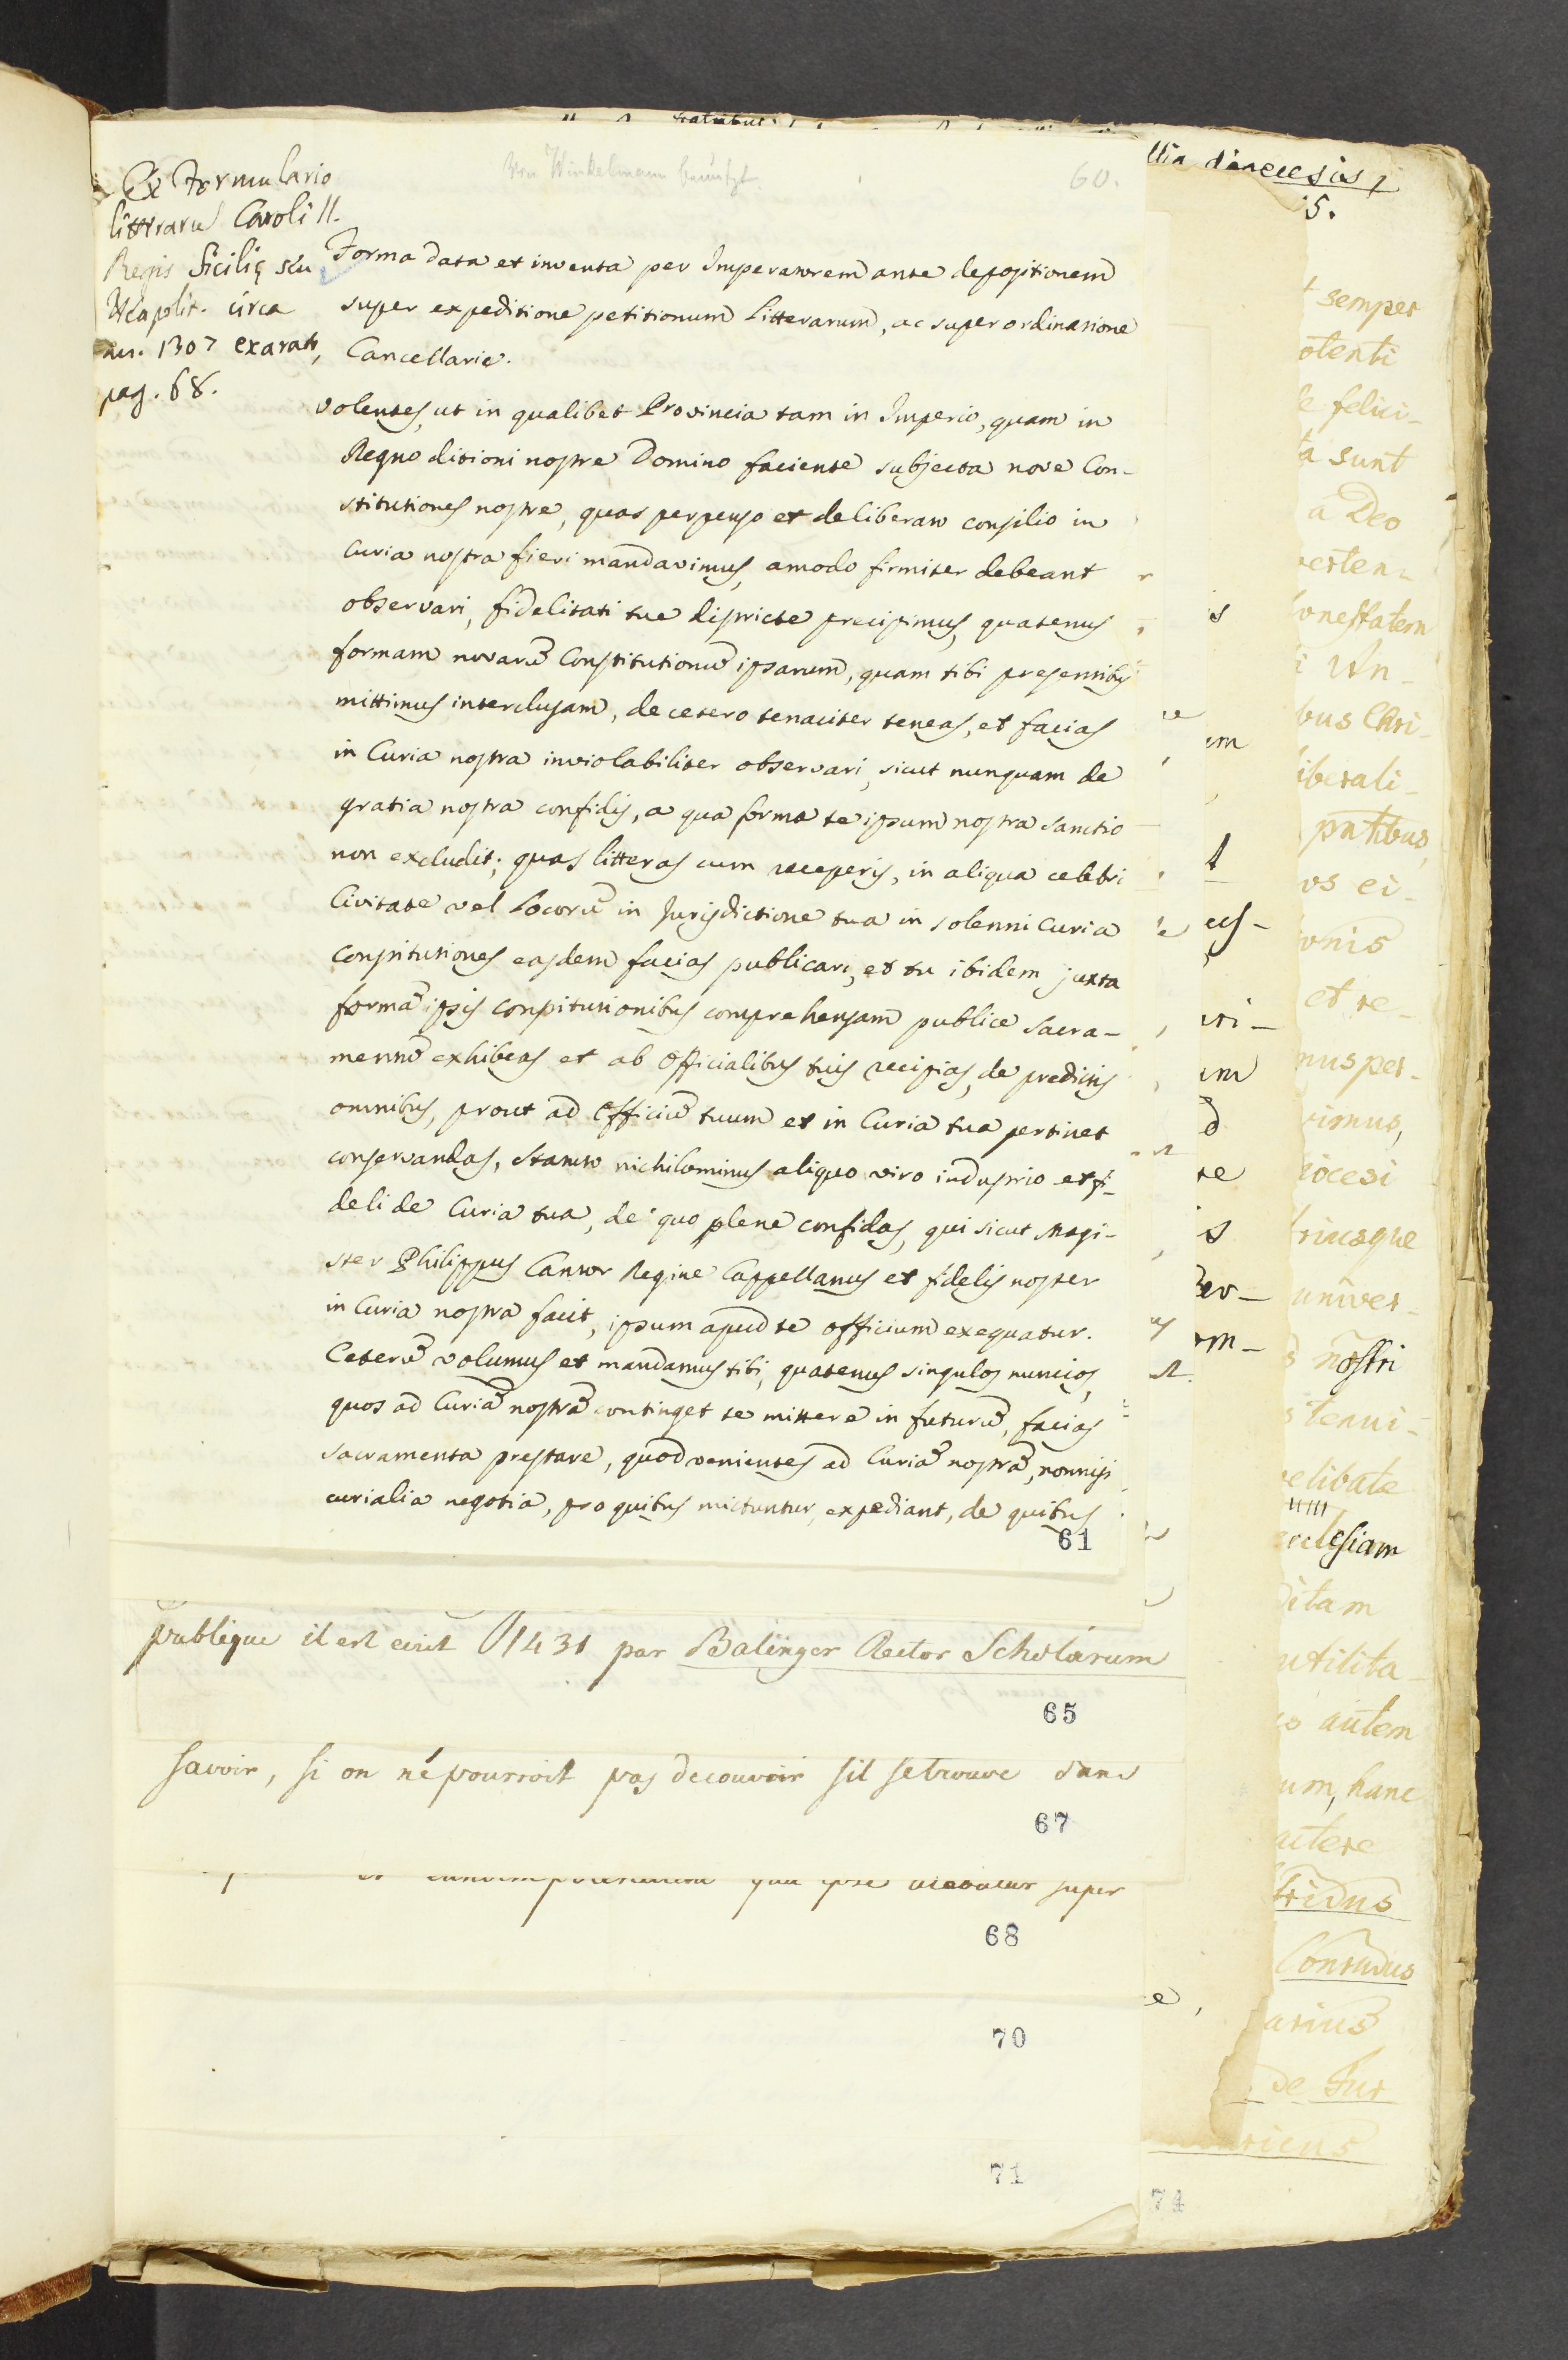 Von Winkelmann benützt.
60.
Ex Formulario
litterarū Caroli II.
Regis Sicilię seu
Neaplit. circa
an. 1307 exarat,
pag. 68.
Forma data et inventa per Imperatorem ante depositionem
super expeditione petitionum Litterarum, ac super ordinatione
Cancellarie.
Volentes, ut in qualibet Provincia tam in Imperio, quam in
Regno ditioni nostre Domino faciente subjecta nove Con-
stitutiones nostre, quas perpenso et deliberato consilio in
Curia nostra fieri mandavimus, amodo firmiter debeant
observari, fidelitati tue districte precipimus, quatenus
formam novarū Constitutionū ipsarum, quam tibi presentibus
mittimus interclusam, de cetero tenaciter teneas, et facias
in Curia nostra inviolabiliter observari, sicut nunquam de
gratia nostra confidis, a qua forma te ipsum nostra sanctio
non excludit; quas litteras cum receperis, in aliqua celebri
Civitate vel Locorū in Jurisdictione tua in solenni Curia
Constitutiones easdem facias publicari, et tu ibidem juxta
formā ipsis constitutionibus comprehensam publice Sacra-
mentū exhibeas et ab Officialibus tuis recipias, de predictis
omnibus, prout ad Officiū tuum et in Curia tua pertinet
conservandas, statuto nichilominus aliquo viro industrio et fi-
deli de Curia tua, de quo plene confidas, qui sicut Magi-
ster Philippus Cantor Regine Cappellanus et fidelis noster
in Curia nostra facit, ipsum apud te officium exequatur.
Ceterū volumus et mandamus tibi, quatenus singulos nuncios,
quos ad Curiā nostrā continget te mittere in futurū, facias
sacramenta prestare, quod venientes ad Curiā nostrā, nonnisi
curialia negotia, pro quibus mictuntur, expediant, de quibus
61
publique il est ecrit 1431 par Balinger Rector Scholarum
65
savoir, si on ne pourroit pas decouvrir sil se trouve dans
67
super
68
70
71
diœcesis
5.
semper
otenti
felici-
ta sunt
a Deo
onestatem
bus Chri-
iberali-
os ei-
onis
et re-
nus per-
vimus,
iocesi
triusque
univer-
nostri
cclesiam
utilita-
autem
um, hanc
Conradus
arius
de Fur
74